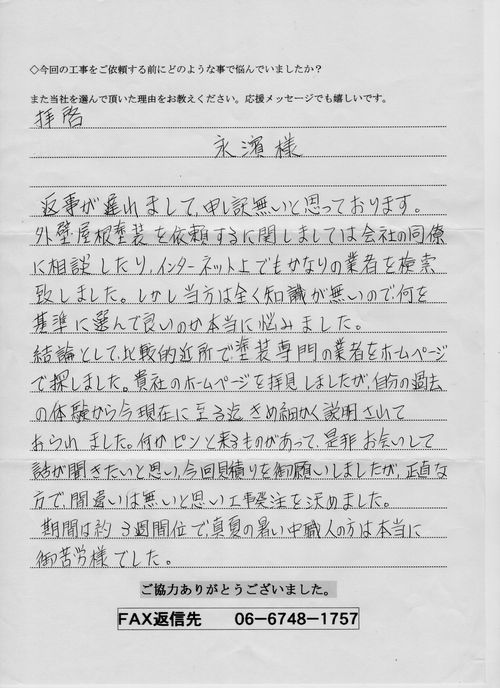 ◇今回の工事をご依頼する前にどのような事で悩んでいましたか？
また当社を選んで頂いた理由をお教えください。応援メッセージでも嬉しいです。
拝啓
永濱様
返事が遅れまして、申し訳無いと思っております。
外壁屋根塗装を依頼するに関しましては会社の同僚
に相談したり、インターネット上でもかなりの業者を検索
致しました。しかし当方は全く知識が無いので何を
基準に選んで良いのか本当に悩みました。
結論として、比較的近所で塗装専門の業者をホームページ
で探しました。貴社のホームページを拝見しましたが、自分の過去
の体験から今現在に至る迄きめ細かく説明されて
おられました。何かピンと来るものがあって、是非お会いして
話が聞きたいと思い、今回見積りを御願いしましたが、正直な
方で、間違いは無いと思い工事発注を決めました。
期間は約3週間位で、真夏の暑い中職人の方は本当に
御苦労様でした。
ご協力ありがとうございました。
FAX返信先 06-6748-1757